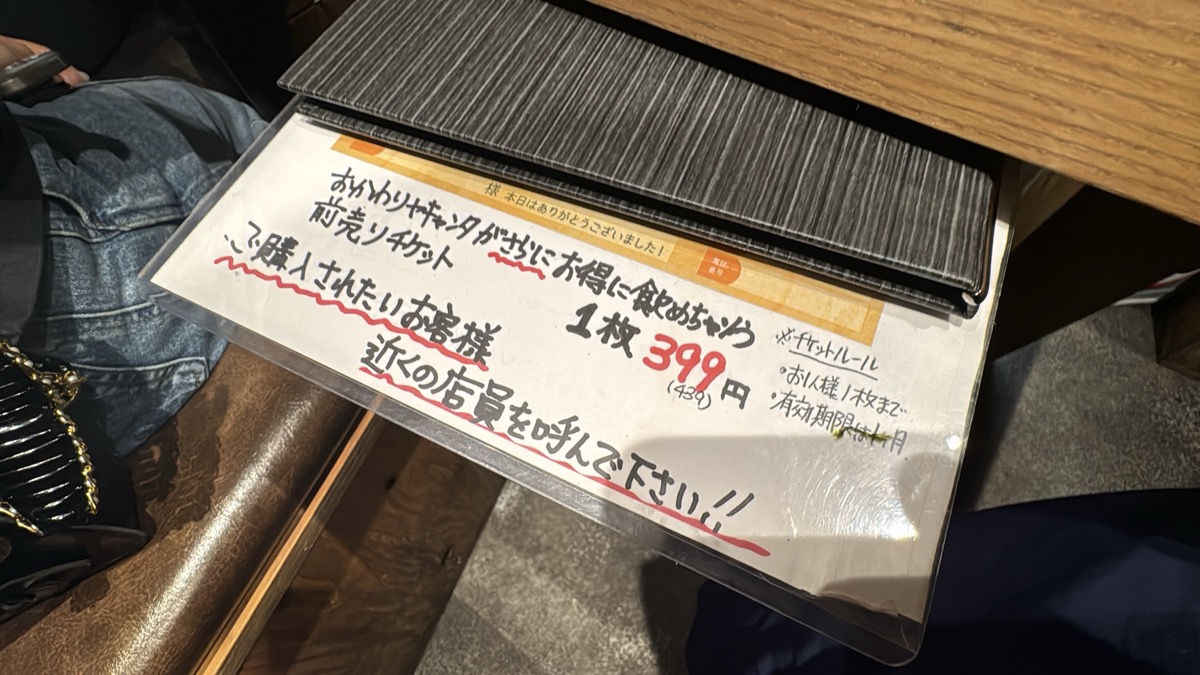 様 本日はありがとうございました!
電話
番号
おかわりキャンタがさらにお得に飲めちゃう
前売りチケット
1枚 399円
(439)
※チケットルール
・お1人様1枚まで
・有効期限は1ヶ月
ご購入されたいお客様
近くの店員を呼んで下さい!!